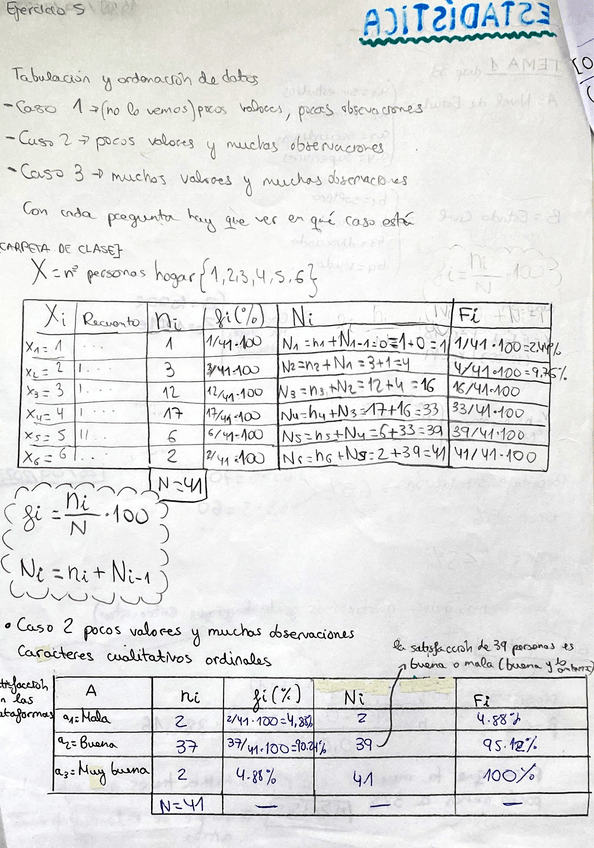 Ejercicio 5
ESTADÍSTICA
TEMA 1
Tabulación y ordenación de datos
- Caso 1 → (no lo vemos) pocos valores, pocas observaciones
- Caso 2 → pocos valores y muchas observaciones
- Caso 3 → muchos valores y muchas observaciones
Con cada pregunta hay que ver en qué caso está
CARPETA DE CLASE]
X = nº personas hogar {1,2,3,4,5,6}
Xi Recuento ni fi(%) Ni Fi
x1 = 1 1 1/41·100 N1 = n1 + N1-1=0 = 1+0 = 1 1/41·100=2.44%
x2 = 2 3 3/41·100 N2 = n2 + N1 = 3+1=4 4/41·100=9.75%
x3 = 3 12 12/41·100 N3 = n3 + N2 = 12+4 = 16 16/41·100
x4 = 4 17 17/41·100 N4 = n4 + N3 = 17+16 = 33 33/41·100
x5 = 5 6 6/41·100 N5 = n5 + N4 = 6+33 = 39 39/41·100
x6 = 6 2 2/41·100 N6 = n6 + N5 = 2+39=41 41/41·100
N=41
fi = ni/N · 100
Ni = ni + Ni-1
• Caso 2 pocos valores y muchas observaciones
Caracteres cualitativos ordinales
la satisfacción de 39 personas es
buena o mala (buena y
A ni fi(%) Ni Fi
a1 = Mala 2 2/41·100=4,88% 2 4.88%
a2 = Buena 37 37/41·100=90.24% 39 95.12%
a3 = Muy buena 2 4.88% 41 100%
N=41 — — —